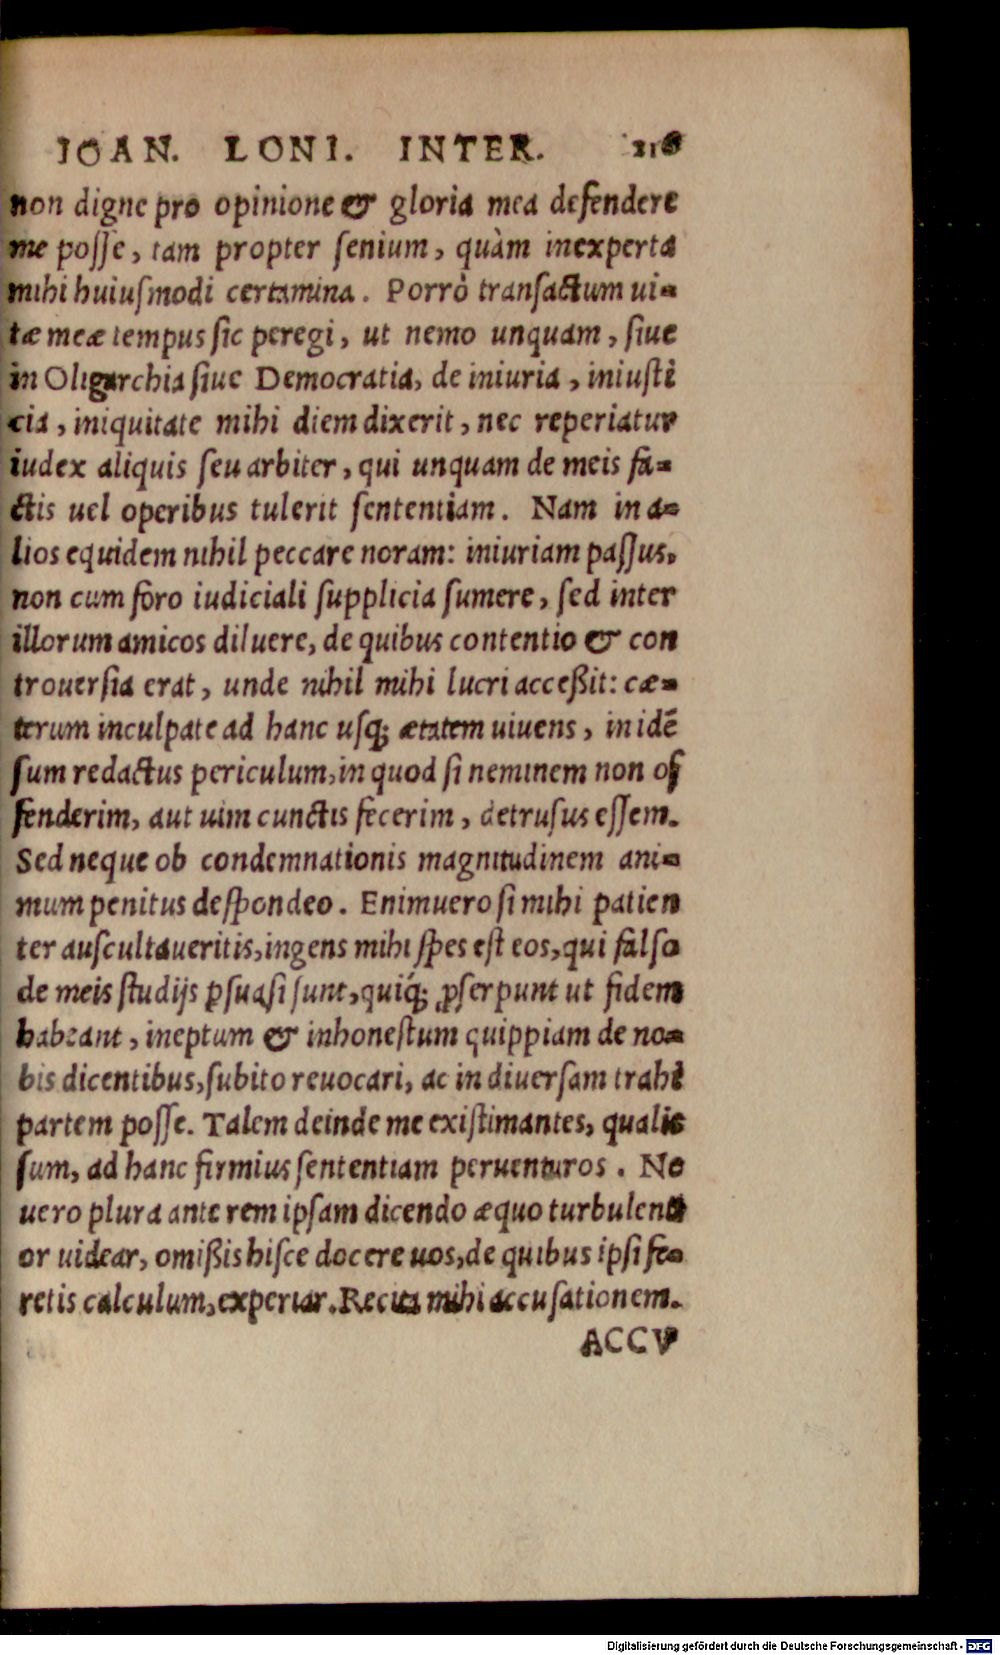 IOAN. LONI. INTER. 216
non digne pro opinione & gloria mea defendere
me posse, tam propter senium, quàm inexperta
mihi huiusmodi certamina. Porrò transactum ui-
tæ meæ tempus sic peregi, ut nemo unquam, siue
in Oligarchia siue Democratia, de iniuria, iniusti
cia, iniquitate mihi diem dixerit, nec reperiatur
iudex aliquis seu arbiter, qui unquam de meis fa-
ctis uel operibus tulerit sententiam. Nam in a-
lios equidem nihil peccare noram: iniuriam passus,
non cum foro iudiciali supplicia sumere, sed inter
illorum amicos diluere, de quibus contentio & con
trouersia erat, unde nihil mihi lucri acceßit: cæ-
terum inculpate ad hanc usq; ætatem uiuens, in idē
sum redactus periculum, in quod si neminem non of
fenderim, aut uim cunctis fecerim, detrusus essem.
Sed neque ob condemnationis magnitudinem ani-
mum penitus despondeo. Enimuero si mihi patien
ter auscultaueritis, ingens mihi spes est eos, qui falso
de meis studijs ꝑsuasi sunt, quiq́; ꝓserpunt ut fidem
habeant, ineptum & inhonestum quippiam de no-
bis dicentibus, subito reuocari, ac in diuersam trahi
partem posse. Talem deinde me existimantes, qualis
sum, ad hanc firmius sententiam peruenturos. Ne
uero plura ante rem ipsam dicendo æquo turbulenti
or uidear, omißis hisce docere uos, de quibus ipsi fe-
retis calculum, experiar. Recita mihi accusationem.
ACCV
Digitalisierung gefördert durch die Deutsche Forschungsgemeinschaft - DFG